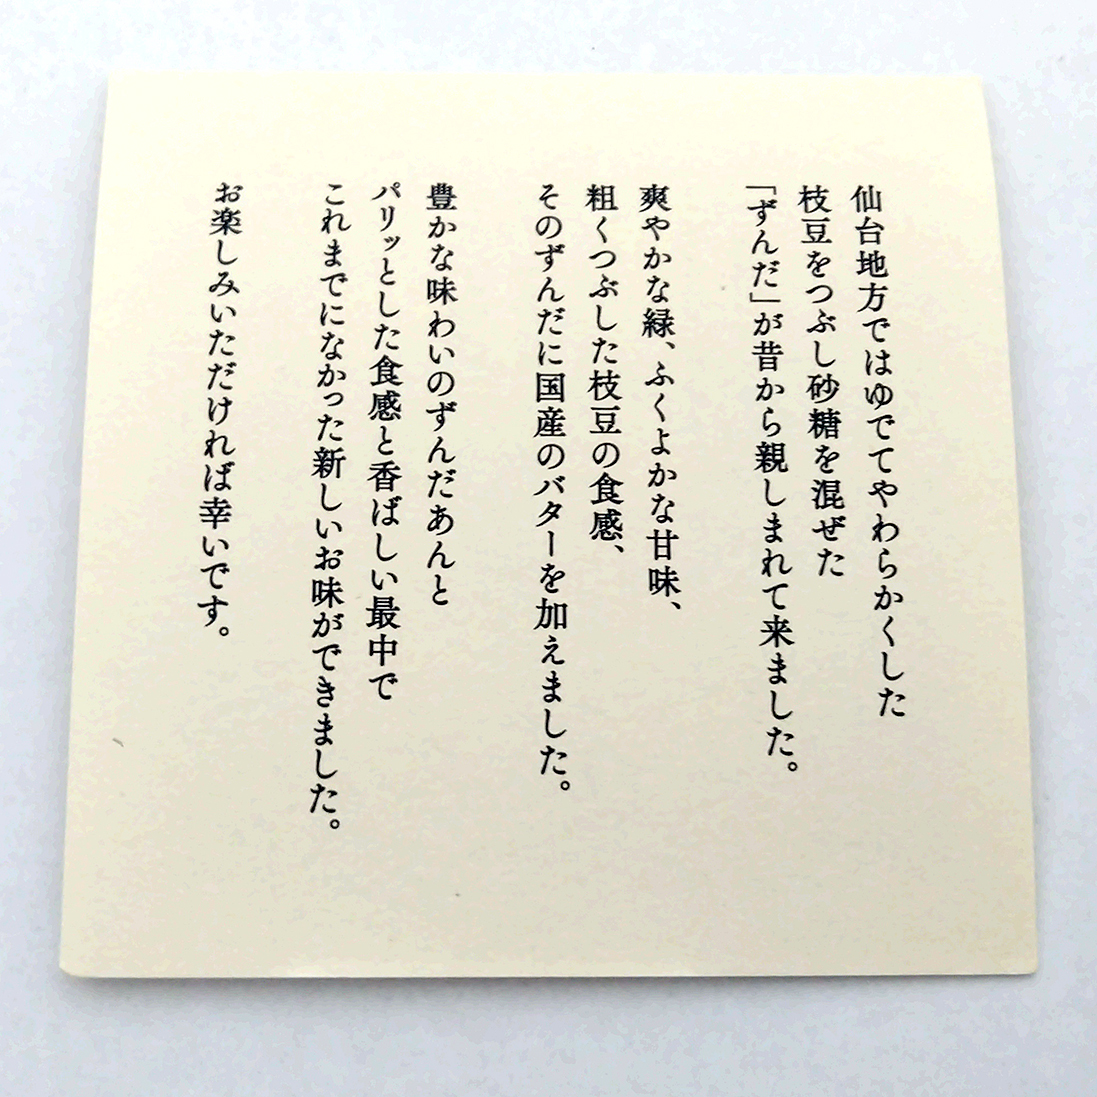 仙台地方ではゆでてやわらかくした
枝豆をつぶし砂糖を混ぜた
「ずんだ」が昔から親しまれて来ました。
爽やかな緑、ふくよかな甘味、
粗くつぶした枝豆の食感、
そのずんだに国産のバターを加えました。
豊かな味わいのずんだあんと
パリッとした食感と香ばしい最中で
これまでになかった新しいお味ができました。
お楽しみいただければ幸いです。